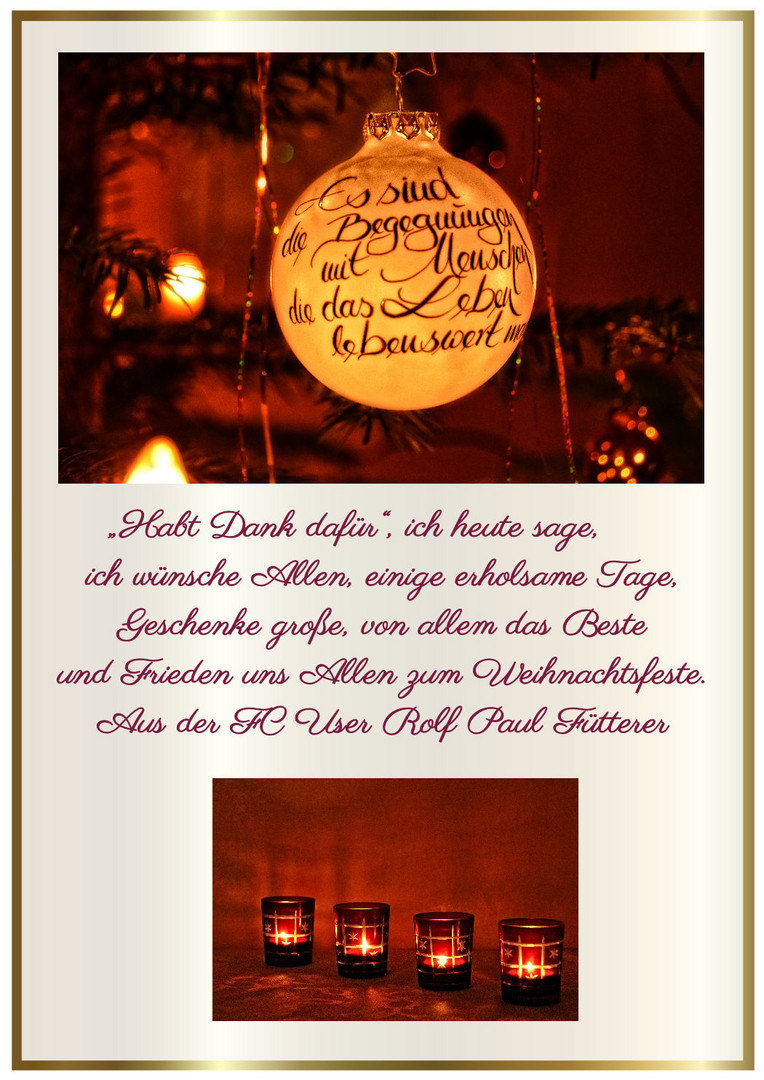 Es sind
die Begegnungen
mit Menschen
die das Leben
lebenswert
„Habt Dank dafür“, ich heute sage,
ich wünsche Allen, einige erholsame Tage,
Geschenke große, von allem das Beste
und Frieden uns Allen zum Weihnachtsfeste.
Aus der FC User Rolf Paul Fütterer